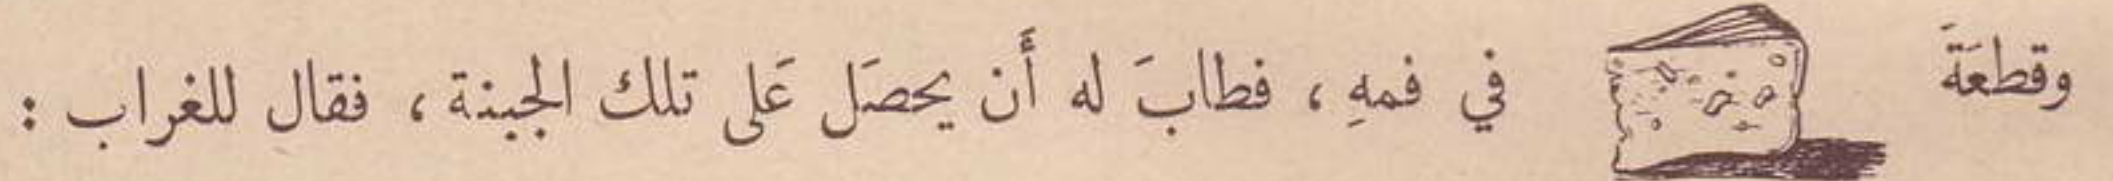 وقطعَةَ في فمهِ ، فطابَ له أَن يحصَل عَلى تلك الجبنة ، فقال للغراب :